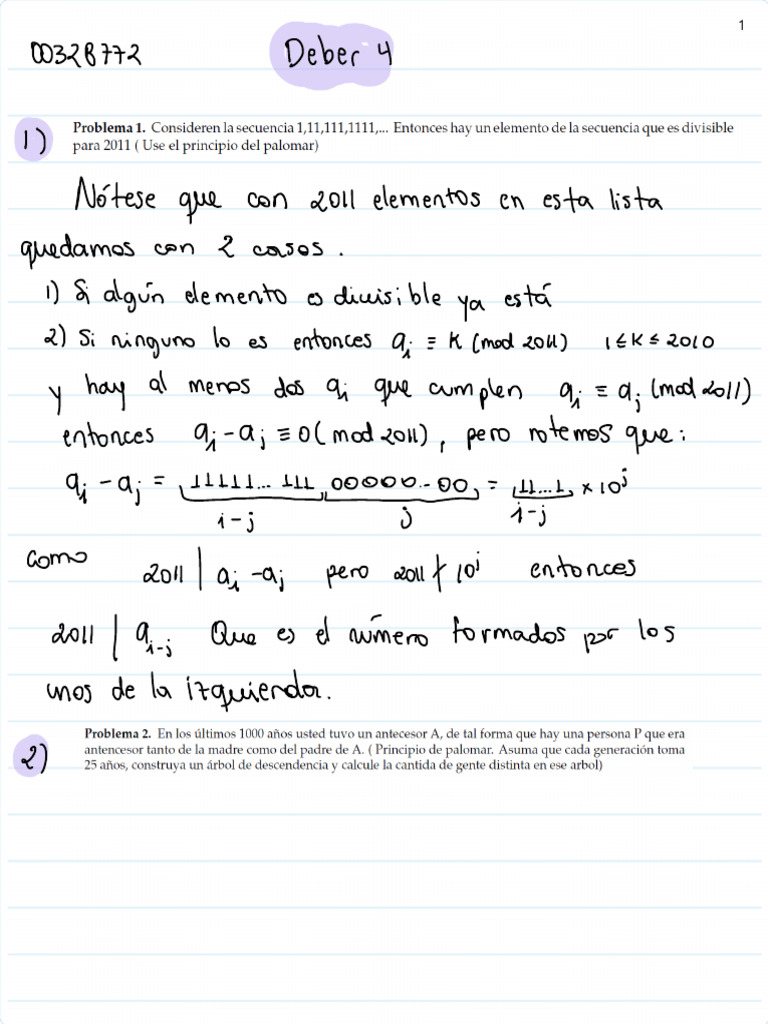 1
00328772
Deber 4
1)
Problema 1. Consideren la secuencia 1,11,111,1111,... Entonces hay un elemento de la secuencia que es divisible
para 2011 ( Use el principio del palomar)
Nótese que con 2011 elementos en esta lista
quedamos con 2 casos.
1) Si algún elemento es divisible ya está
2) Si ninguno lo es entonces aᵢ ≡ K (mod 2011) 1 ≤ K ≤ 2010
y hay al menos dos aᵢ que cumplen aᵢ ≡ aⱼ (mod 2011)
entonces aᵢ - aⱼ ≡ 0 (mod 2011), pero notemos que:
aᵢ - aⱼ = 11111... 111 00000...00 = 11...1 × 10ʲ
i-j j i-j
como 2011 | aᵢ - aⱼ pero 2011 ∤ 10ʲ entonces
2011 | aᵢ₋ⱼ Que es el número formados por los
unos de la izquierda.
2)
Problema 2. En los últimos 1000 años usted tuvo un antecesor A, de tal forma que hay una persona P que era
antencesor tanto de la madre como del padre de A. ( Principio de palomar. Asuma que cada generación toma
25 años, construya un árbol de descendencia y calcule la cantida de gente distinta en ese arbol)